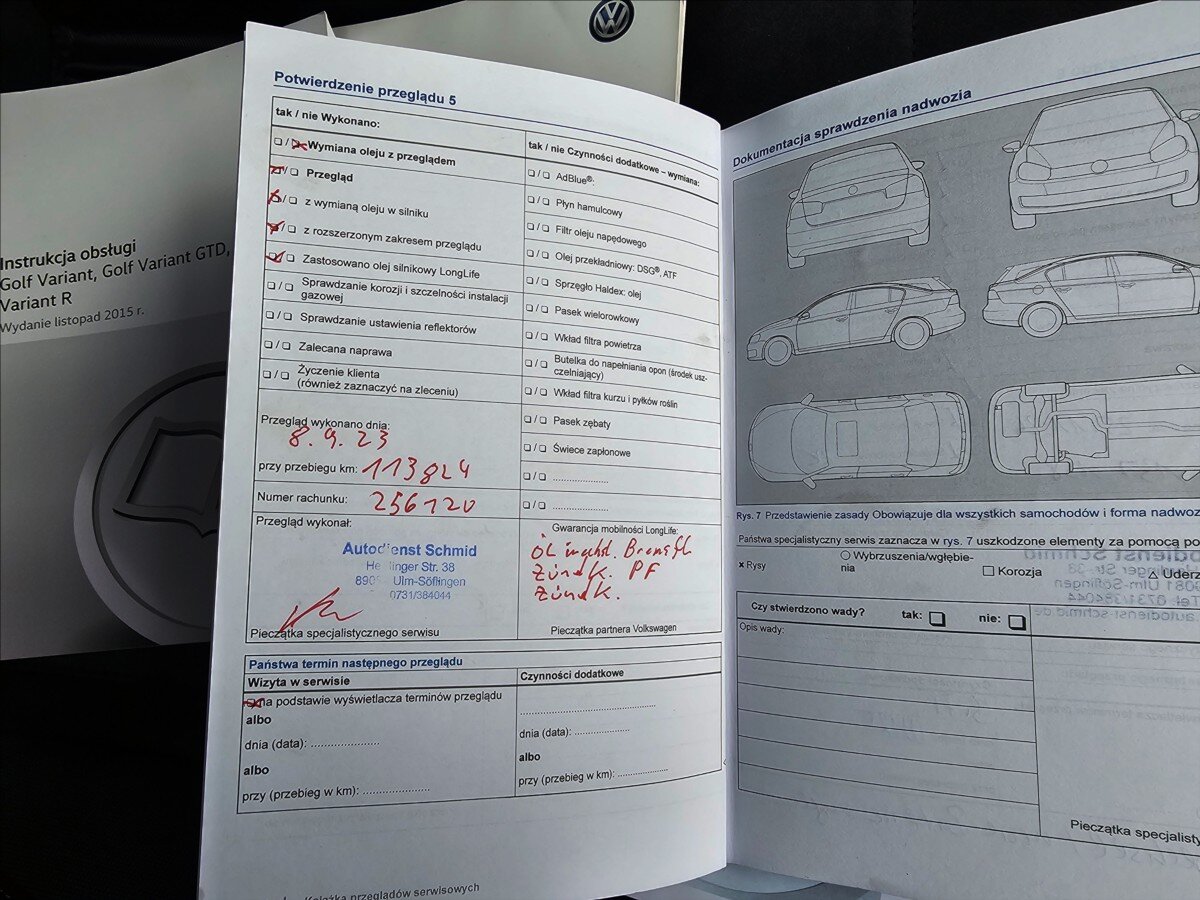 Instrukcja obsługi
Golf Variant, Golf Variant GTD,
Variant R
Wydanie listopad 2015 r.
Potwierdzenie przeglądu 5
tak / nie Wykonano:
Wymiana oleju z przeglądem
Przegląd
z wymianą oleju w silniku
z rozszerzonym zakresem przeglądu
Zastosowano olej silnikowy LongLife
Sprawdzanie korozji i szczelności instalacji
gazowej
Sprawdzanie ustawienia reflektorów
Zalecana naprawa
Życzenie klienta
(również zaznaczyć na zleceniu)
Przegląd wykonano dnia:
8.9.23
przy przebiegu km: 113824
Numer rachunku: 256120
Przegląd wykonał:
Autodienst Schmid
Str. 38
Ulm-Söflingen
0731/384044
Pieczątka specjalistycznego serwisu
tak / nie Czynności dodatkowe – wymiana:
AdBlue®:
Płyn hamulcowy
Filtr oleju napędowego
Olej przekładniowy: DSG®, ATF
Sprzęgło Haldex: olej
Pasek wielorowkowy
Wkład filtra powietrza
Butelka do napełniania opon (środek usz-
czelniający)
Wkład filtra kurzu i pyłków roślin
Pasek zębaty
Świece zapłonowe
Gwarancja mobilności LongLife:
PF
Pieczątka partnera Volkswagen
Państwa termin następnego przeglądu
Wizyta w serwisie
na podstawie wyświetlacza terminów przeglądu
albo
dnia (data): ......................
albo
przy (przebieg w km): ......................
Czynności dodatkowe
dnia (data): ..................
albo
przy (przebieg w km): ................
Książka przeglądów serwisowych
Dokumentacja sprawdzenia nadwozia
Rys. 7 Przedstawienie zasady Obowiązuje dla wszystkich samochodów i forma nadwoz
Państwa specjalistyczny serwis zaznacza w rys. 7 uszkodzone elementy za pomocą po
× Rysy
Wybrzuszenia/wgłębie-
nia
Korozja
Uderz
Czy stwierdzono wady? tak: nie:
Opis wady:
Pieczątka specjalisty